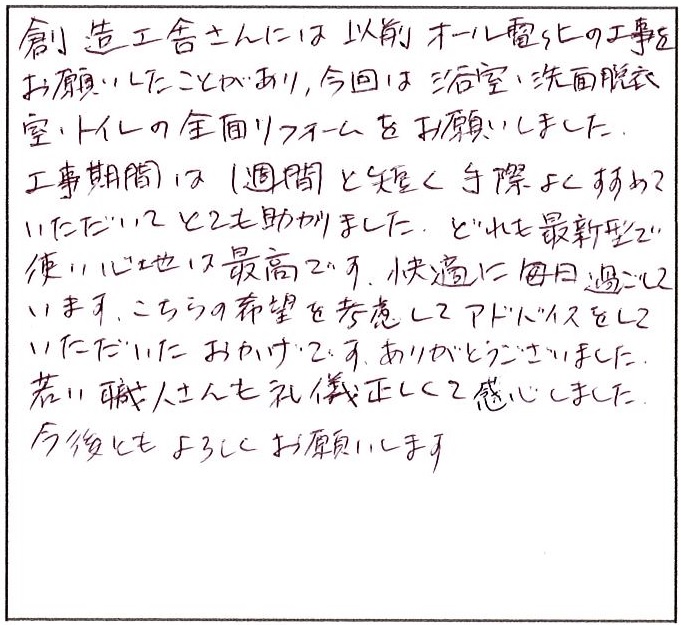 創造工舎さんには以前オール電化の工事を
お願いしたことがあり、今回は浴室・洗面脱衣
室・トイレの全面リフォームをお願いしました。
工事期間は1週間と短く手際よくすすめて
いただいてとても助かりました。どれも最新型で
使い心地は最高です。快適に毎日過ごして
います。こちらの希望を考慮してアドバイスをして
いただいたおかげです。ありがとうございました。
若い職人さんも礼儀正しくて感心しました。
今後ともよろしくお願いします